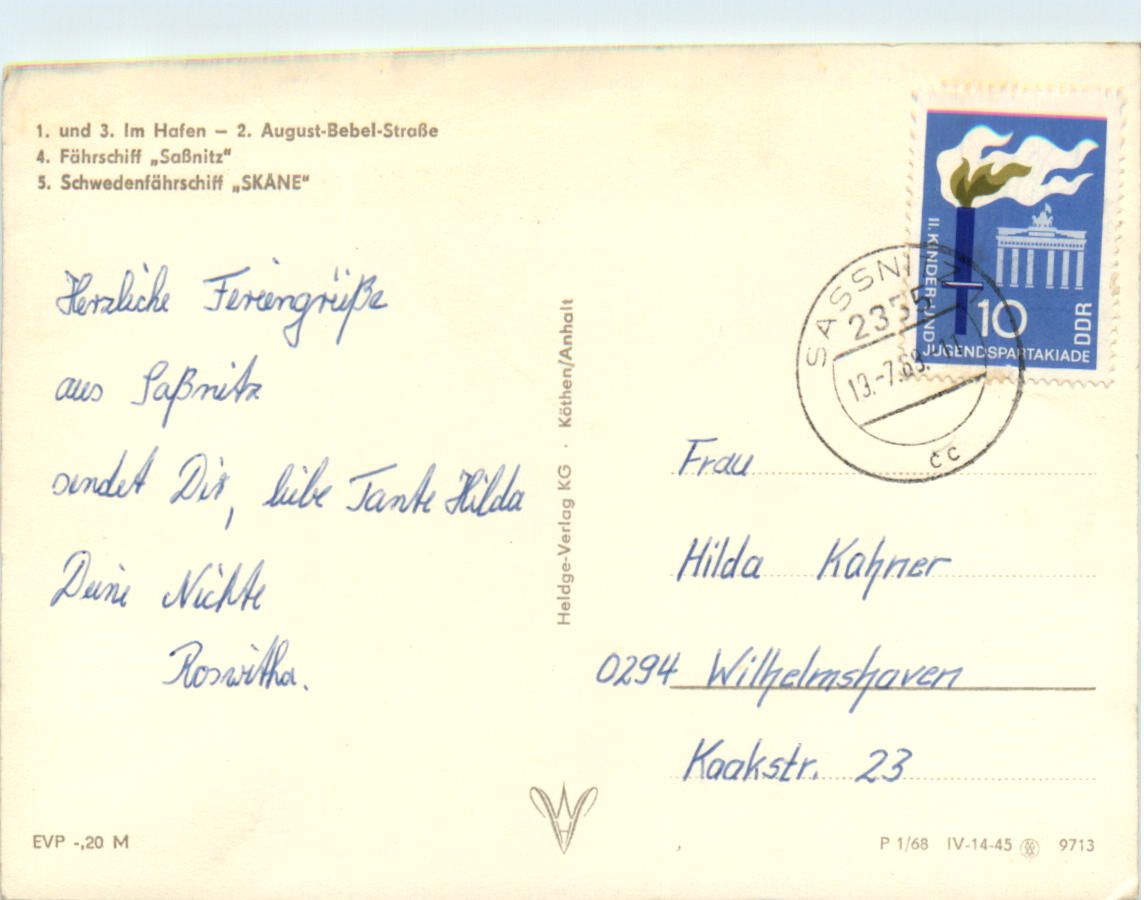 1. und 3. Im Hafen – 2. August-Bebel-Straße
4. Fährschiff „Saßnitz"
5. Schwedenfährschiff „SKÅNE"
Herzliche Feriengrüße
aus Saßnitz
sendet Dir, liebe Tante Hilda
Deine Nichte
Roswitha.
EVP -,20 M
Heldge-Verlag KG · Köthen/Anhalt
II. KINDER UND
JUGENDSPARTAKIADE
10
DDR
SASSNITZ 1
2355
cc
Frau
Hilda Kahner
0294 Wilhelmshaven
Kaakstr. 23
P 1/68 IV-14-45 9713